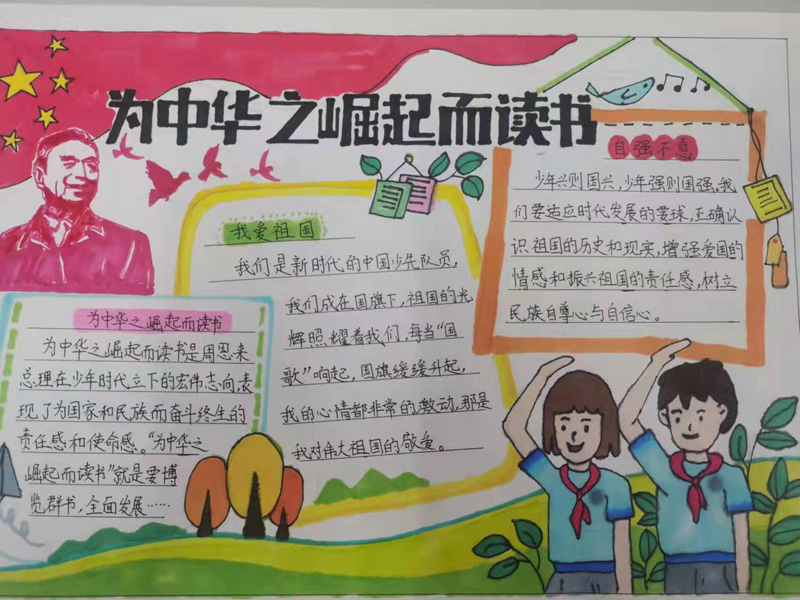 为中华之崛起而读书
为中华之崛起而读书
为中华之崛起而读书是周恩来
总理在少年时代立下的宏伟志向,表
现了为国家和民族而奋斗终生的
责任感和使命感。“为中华之
崛起而读书”就是要博
览群书,全面发展……
我爱祖国
我们是新时代的中国少先队员,
我们成在国旗下,祖国的光
辉照耀着我们,每当“国
歌”响起,国旗缓缓升起,
我的心情都非常的激动,那是
我对伟大祖国的敬爱。
自强不息
少年兴则国兴,少年强则国强。我
们要适应时代发展的要球,正确认
识祖国的历史和现实,增强爱国的
情感和振兴祖国的责任感,树立
民族自尊心与自信心。